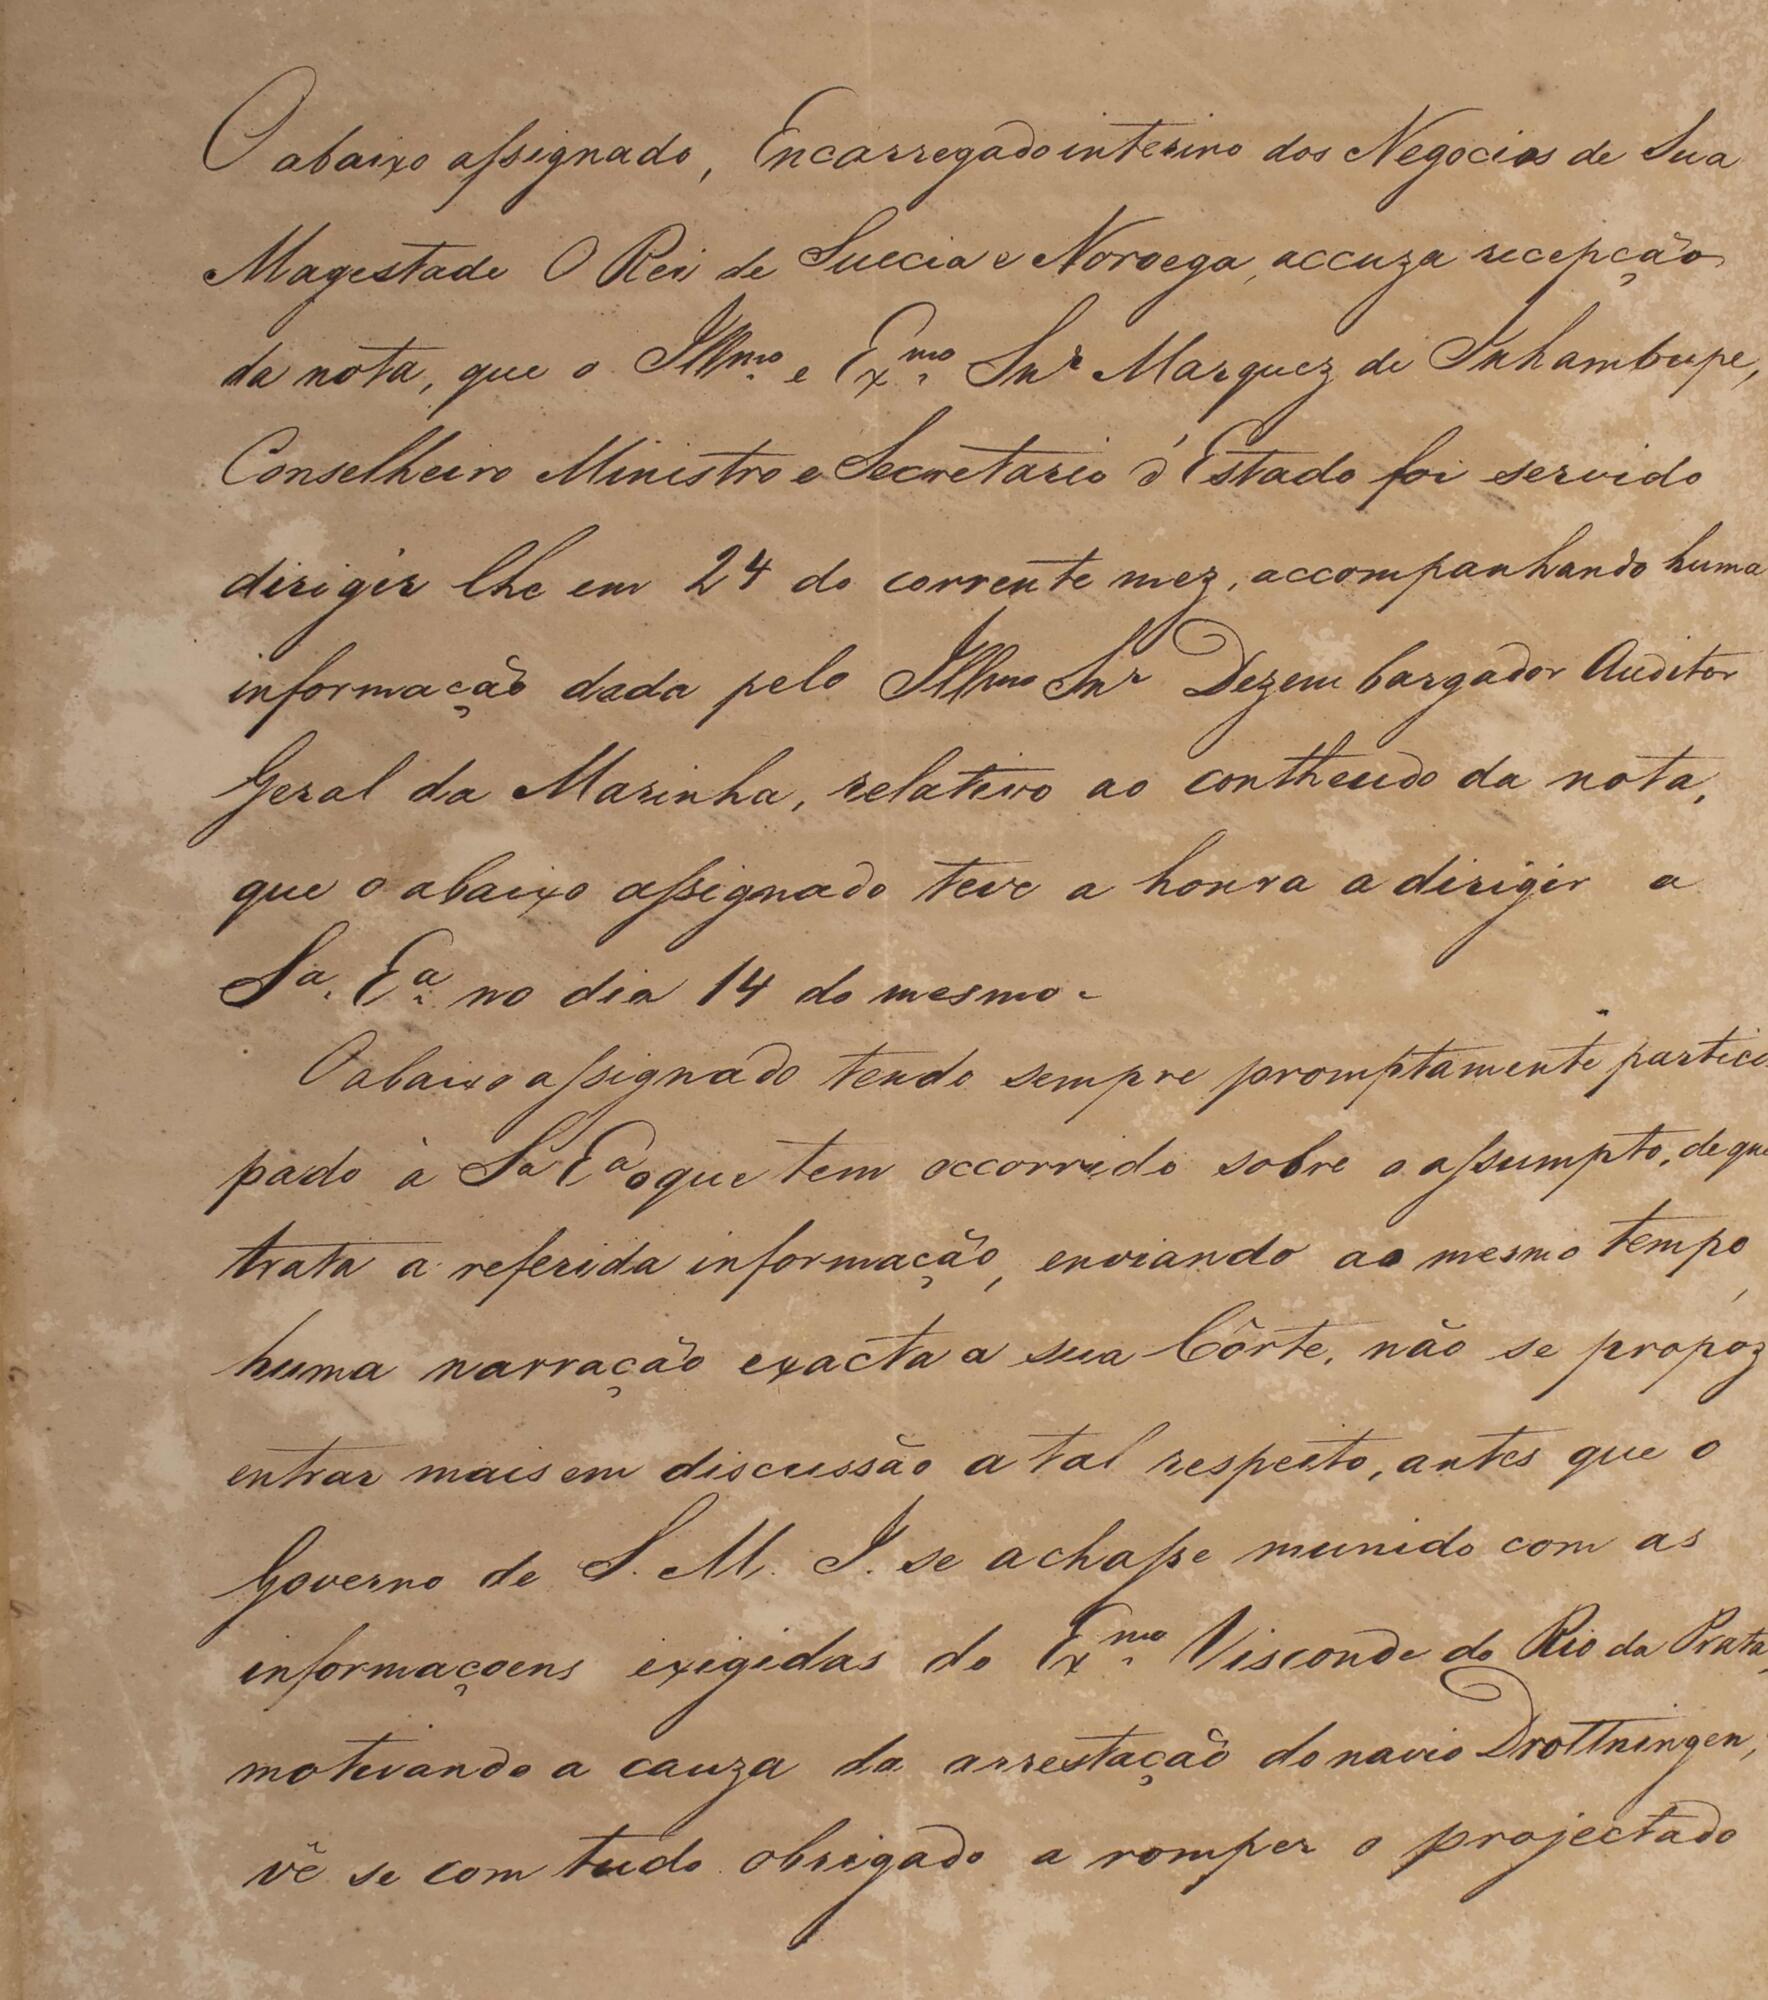 O abaixo assignado, Encarregado interino dos Negocios de Sua
Magestade O Rei de Suecia e Noroega, accuza recepção
da nota, que o Illmo. e Exmo. Snr Marquez de Inhambupe,
Conselheiro Ministro e Secretario d'Estado foi servido
dirigir lhe em 24 do corrente mez, accompanhando huma
informação dada pelo Illmo Snr Dezembargador Auditor
Geral da Marinha, relativo ao contheudo da nota,
que o abaixo assignado teve a honra a dirigir a
Sa. Ea. no dia 14 do mesmo.
O abaixo assignado tendo sempre promptamente partici
pado à Sa Ea o que tem occorrido sobre o assumpto, de que
trata a referida informação, enviando ao mesmo tempo,
huma narração exacta a sua Côrte, não se propoz
entrar mais em discussão a tal respeito, antes que o
Governo de S. M. I. se achasse munido com as
informaçoens exigidas do Exmo. Visconde do Rio da Prata,
motivando a cauza da arrestação do navio Drottningen,
vê se com tudo obrigado a romper o projectado